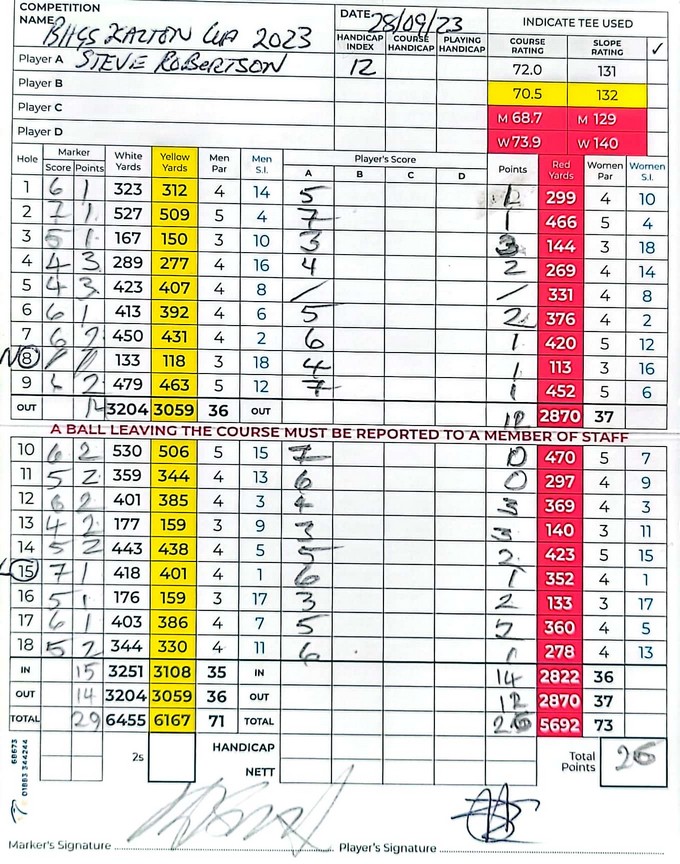 COMPETITION NAME BIGGS KALTON CUP 2023 DATE 28/09/23 INDICATE TEE USED
HANDICAP INDEX COURSE HANDICAP PLAYING HANDICAP COURSE RATING SLOPE RATING ✓
Player A STEVE ROBERTSON 12 72.0 131
Player B 70.5 132
Player C M 68.7 M 129
Player D W 73.9 W 140
Hole Marker Score Points White Yards Yellow Yards Men Par Men S.I. Player's Score A B C D Points Red Yards Women Par Women S.I.
1 6 1 323 312 4 14 5 299 4 10
2 7 1 527 509 5 4 7 1 466 5 4
3 5 1 167 150 3 10 3 3 144 3 18
4 4 3 289 277 4 16 4 2 269 4 14
5 4 3 423 407 4 8 / / 331 4 8
6 6 1 413 392 4 6 5 2 376 4 2
7 6 2 450 431 4 2 6 1 420 5 12
N 8 / / 133 118 3 18 4 1 113 3 16
9 2 479 463 5 12 7 1 452 5 6
OUT 3204 3059 36 OUT 12 2870 37
A BALL LEAVING THE COURSE MUST BE REPORTED TO A MEMBER OF STAFF
10 6 2 530 506 5 15 7 0 470 5 7
11 5 2 359 344 4 13 6 0 297 4 9
12 6 2 401 385 4 3 4 3 369 4 3
13 4 2 177 159 3 9 3 3 140 3 11
14 5 2 443 438 4 5 5 2 423 5 15
L 15 7 1 418 401 4 1 6 1 352 4 1
16 5 1 176 159 3 17 3 2 133 3 17
17 6 1 403 386 4 7 5 2 360 4 5
18 5 2 344 330 4 11 6 1 278 4 13
IN 15 3251 3108 35 IN 14 2822 36
OUT 14 3204 3059 36 OUT 12 2870 37
TOTAL 29 6455 6167 71 TOTAL 26 5692 73
2s HANDICAP Total Points 26
NETT
68673
01883 344244
Marker's Signature Player's Signature